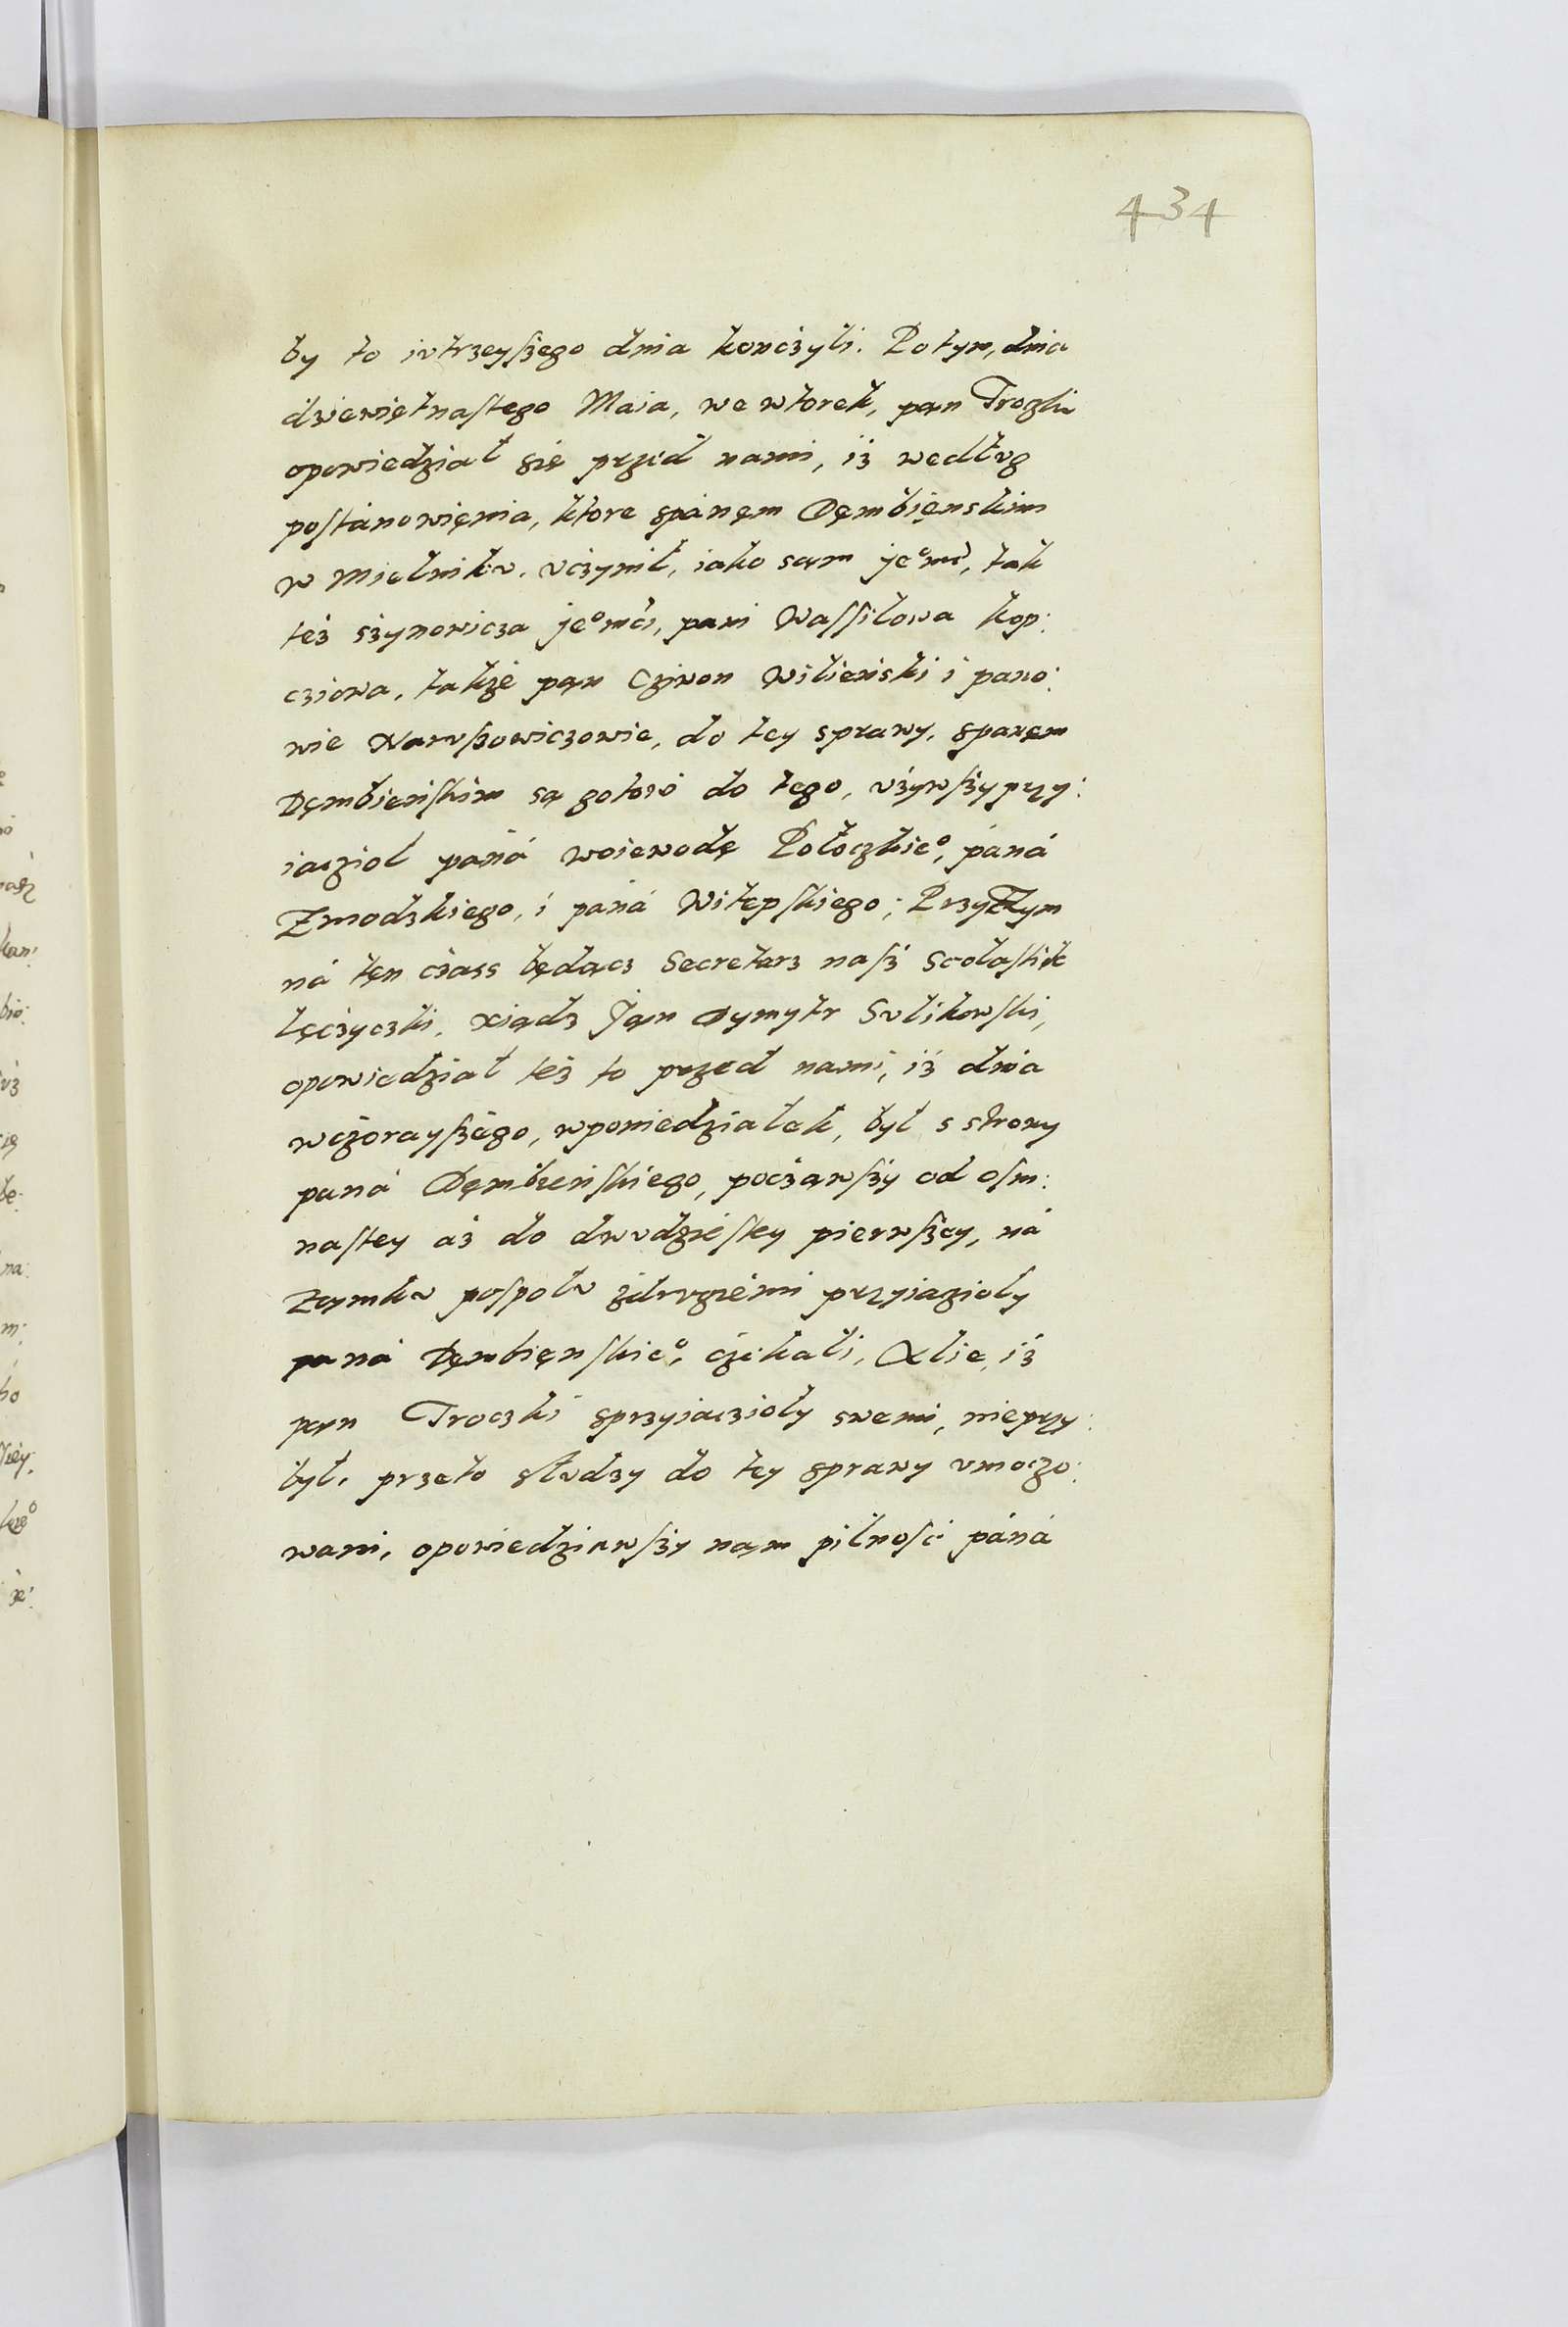 434
by to iutrzeyszego dnia kończyli. Potym, dnia
dziewiętnastego Maia, we wtorek, pąn Trozki
opowiedział się przed nami, iż według
postánowięnia, ktore spánęm Dęmbięnskim
w Mielniku. uczynił, iako sąm jeomć, tak
też szynowicza jeomći, pani Wassilowa kop:
cziowa, także pąn Cziwon Wilieński i pano:
wie Naruszowiczowie, do tey sprawy, spanęm
Dęmbieńskim są gotowi do tego, używszy przy:
iaczioł páná woiewodę Połoczkieo, páná
Zmodzkiego, i páná Witepskiego; Przytym
ná tęn czass będącz Secretarz nasz Scolastik
łęczyczki, xiądz Jąn Dymytr Sulikowski,
opowiedział też to przed nami, iż dnia
wczorayszego, wponiedziałek, był s strony
páná Dęmbieńskiego, począwszy od osm:
nastey aż do dwudziestey pierwszey, ná
Ząmku pospołu zdrugiemi przyiazioły
páná Dęmbięnskieo, czekali, Alie, iż
pąn Troczki sprzyiaczioły swemi, nieprzy:
był, przeto słudzy do tey sprawy umoczo:
wani, opowiedziawszy nąm pilność páná